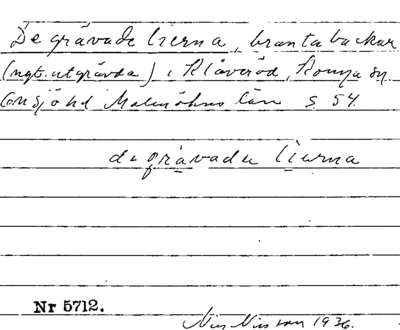 De grävade lierna, branta backar
(ngt. utgrävda) i Klåveröd, Konga sn
Onsjö hd Malmöhus län s 54.
de grävade lierna
Nr 5712.
Nils Nilsson 1936.